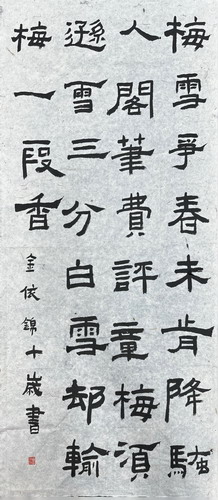 梅雪爭春未肯降騷
人閣筆費評章梅須
遜雪三分白雪却輸
梅一段香
金錦十歲書